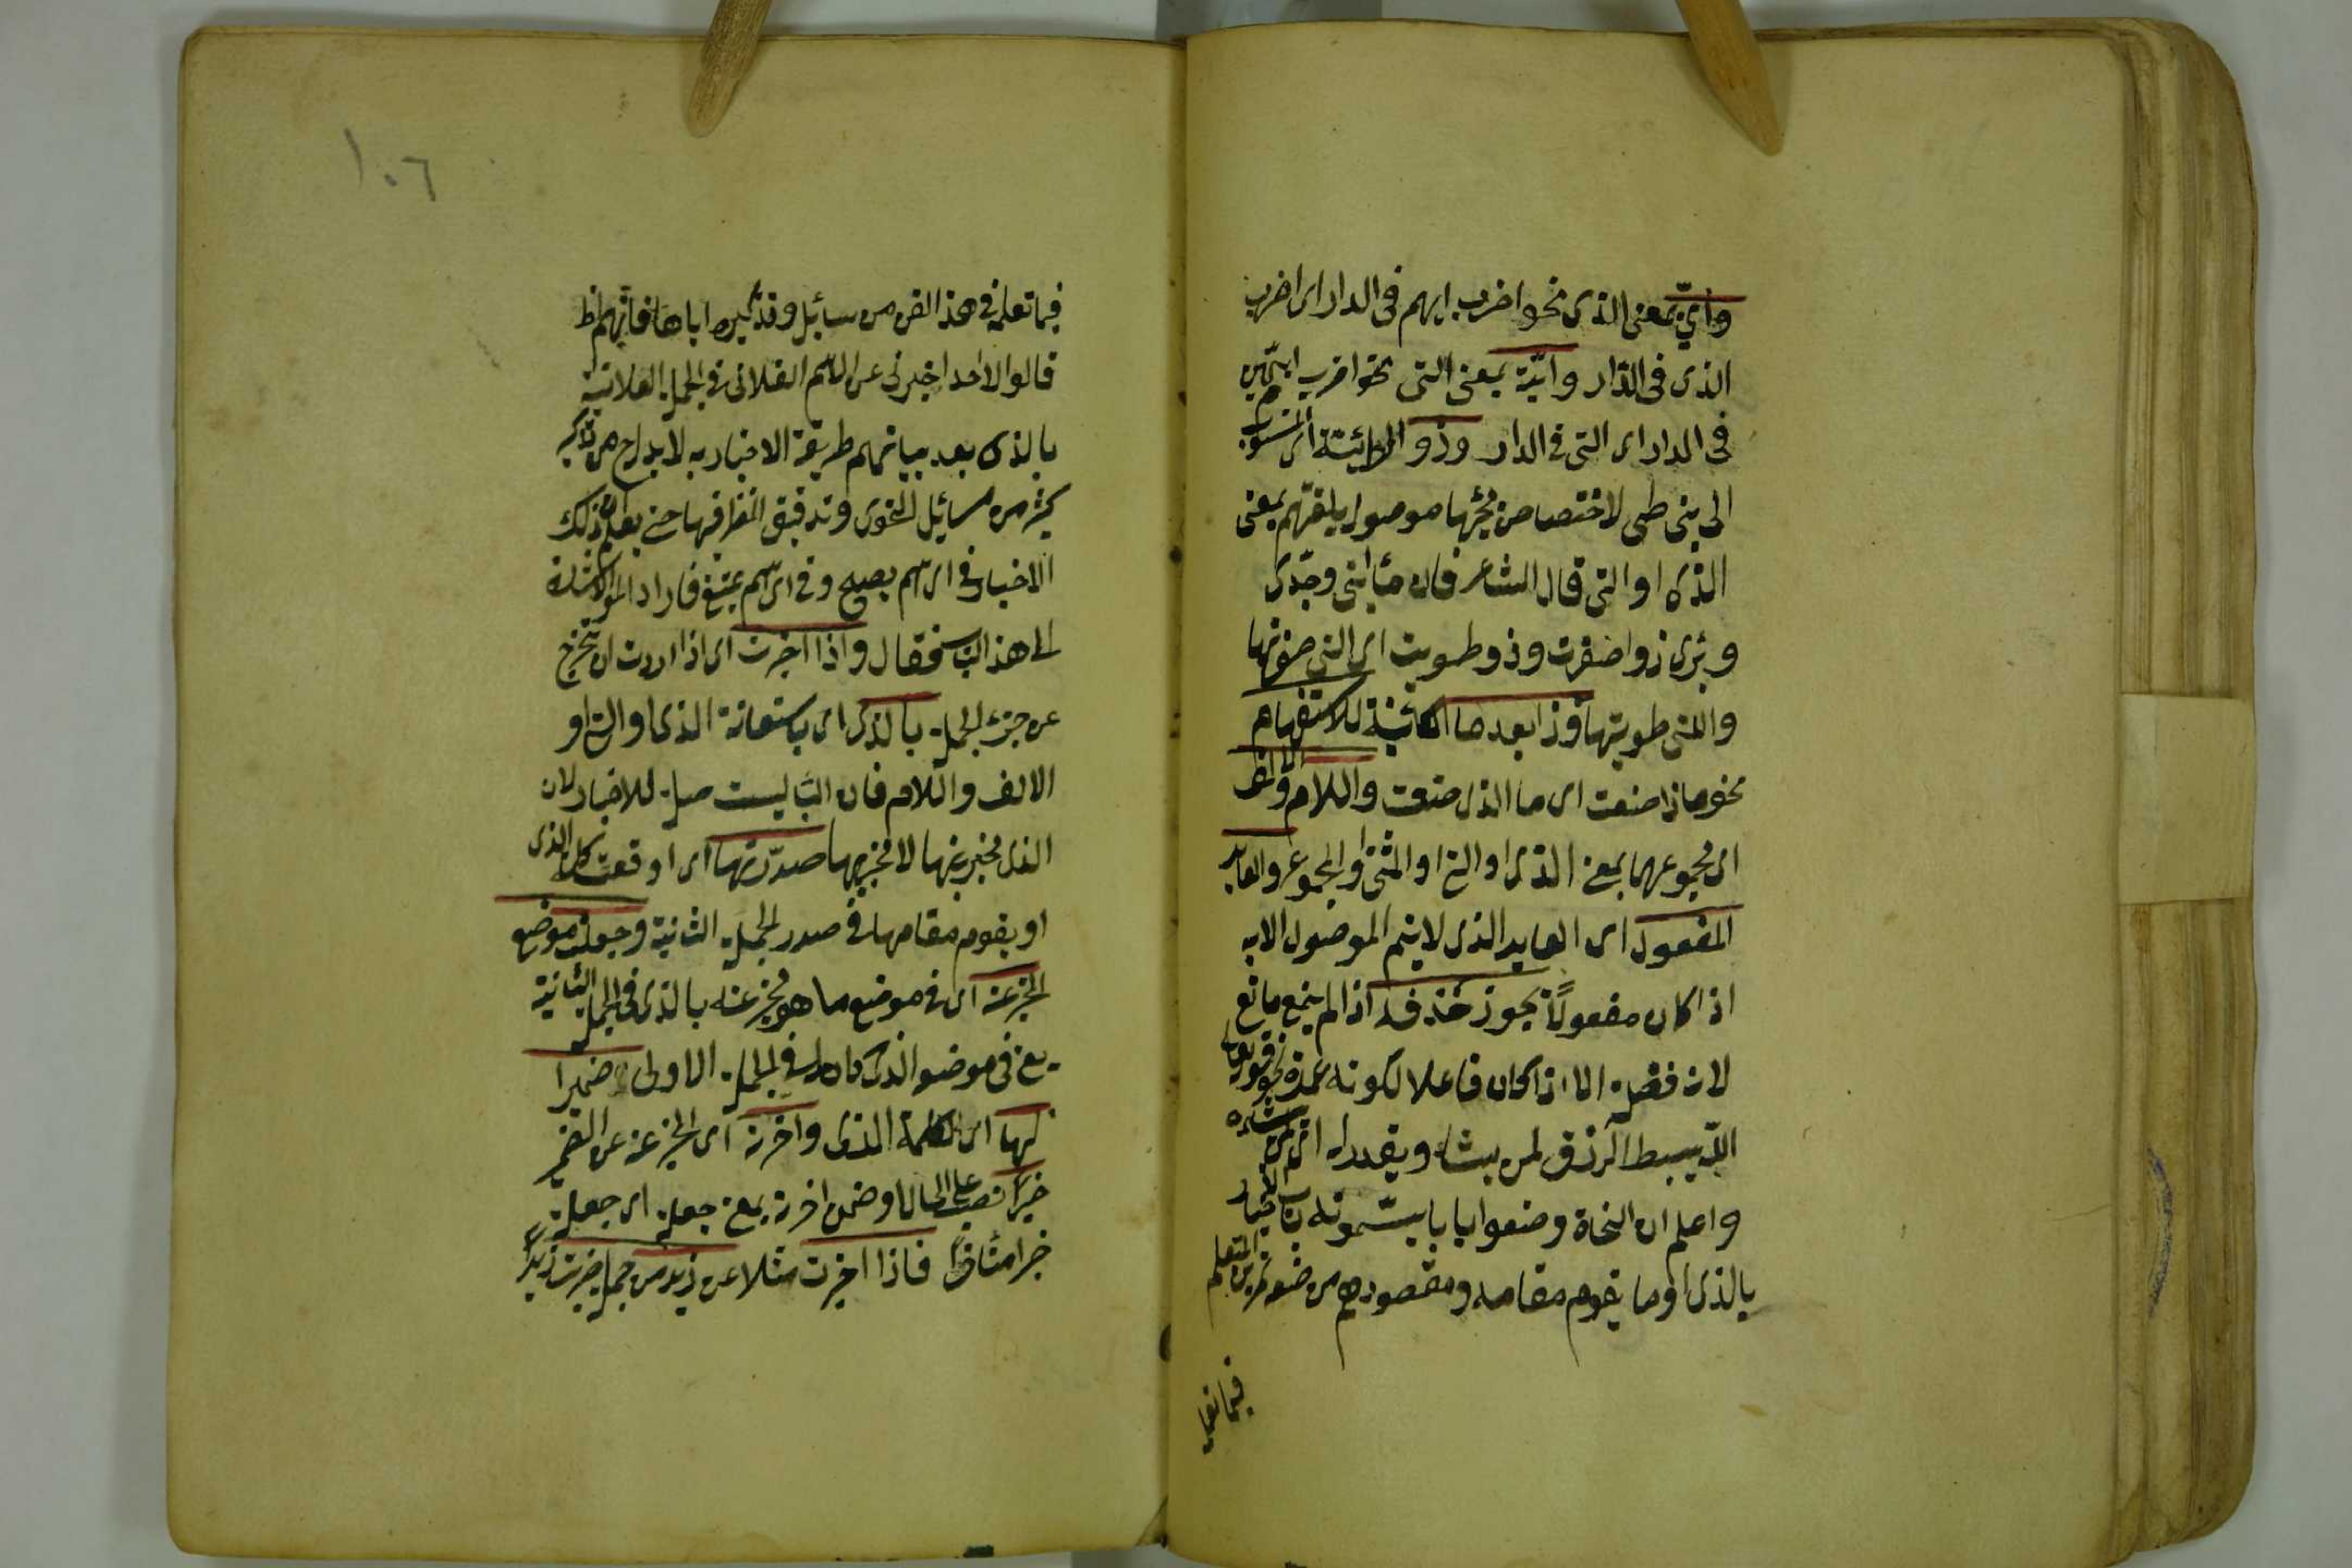 وايّ بمعنى الذى نحو اضرب ايهم فى الدار اى اضرب
الذى فى الدّار وايّة بمعنى التى نحو اضرب ايتهن
فى الدار اى التى فى الدار وذو الطائية اى المنسوبة
الى بنى طى لاختصاص مجيئها موصولة بلغتهم بمعنى
الذى او التى قال الشاعر فان ماء ابى وجدّى
وبئرى ذو حفرت وذو طويت اى التى حفرتها
والتى طويتها وذا بعد ما الكائنة للاستفهام
نحو ماذا صنعت اى ما الذى صنعت والالف واللام
اى مجموعهما بمعنى الذى او التى او المثنى او المجموع والعايد
المفعول اى العايد الذى لا يتم الموصول الا به
اذا كان مفعولاً يجوز حذفه اذا لم يمنع مانع
لانه فضلة الا اذا كان فاعلا لكونه عمدة نحو قوله تعالى
اللّه يبسط الرزق لمن يشاء ويقدر له اى لمن يشاءه
واعلم ان النحاة وضعوا بابا يسمّونه باب الاخبار
بالذى او ما يقوم مقامه ومقصودهم من وضعه تمرين المتعلم
فيما تعلمه
١٠٦
فيما تعلمه فى هذ الفن من مسائل وتذكيره اياها فانهم اذا
قالوا لاحد اخبر لى عن الاسم الفلانى فى الجملة الفلانية
بالذى بعد بيانهم طريقة الاخبار به لا بد له من تذكير
كثير من مسائل النحوى وتدقيق النظر فيها حتى يعلم ان ذلك
الاخبار فى اى اسم يصح وفى اى اسم يمتنع فاراد المص الاشارة
الى هذ الباب فقال واذا اخبرت اى اذا اردت ان تخبر
عن جزء الجملة بالذى اى باستعانة الذى او التى او
الالف واللام فان الباء ليست صلة للاخبار لان
الذى مخبر عنها لا مخبر بها صدّرتها اى اوقعت كلمة الذى
او يقوم مقامها فى صدر الجملة الثانية وجعلت موضع
المخبر عنه اى فى موضع ما هو مخبر عنه بالذى فى الجملة الثانية
يعنى فى موضعه الذى كان له فى الجملة الاولى ضميرا
لها اى لكلمة الذى واخرته اى المخبر عنه عن الضمير
خبراً نصب على الحال او ضمن اخرته بمعنى جعلته اى جعلته
خبرا متاخراً فاذا اخبرت مثلا عن زيد من جملة ضربت زيداً